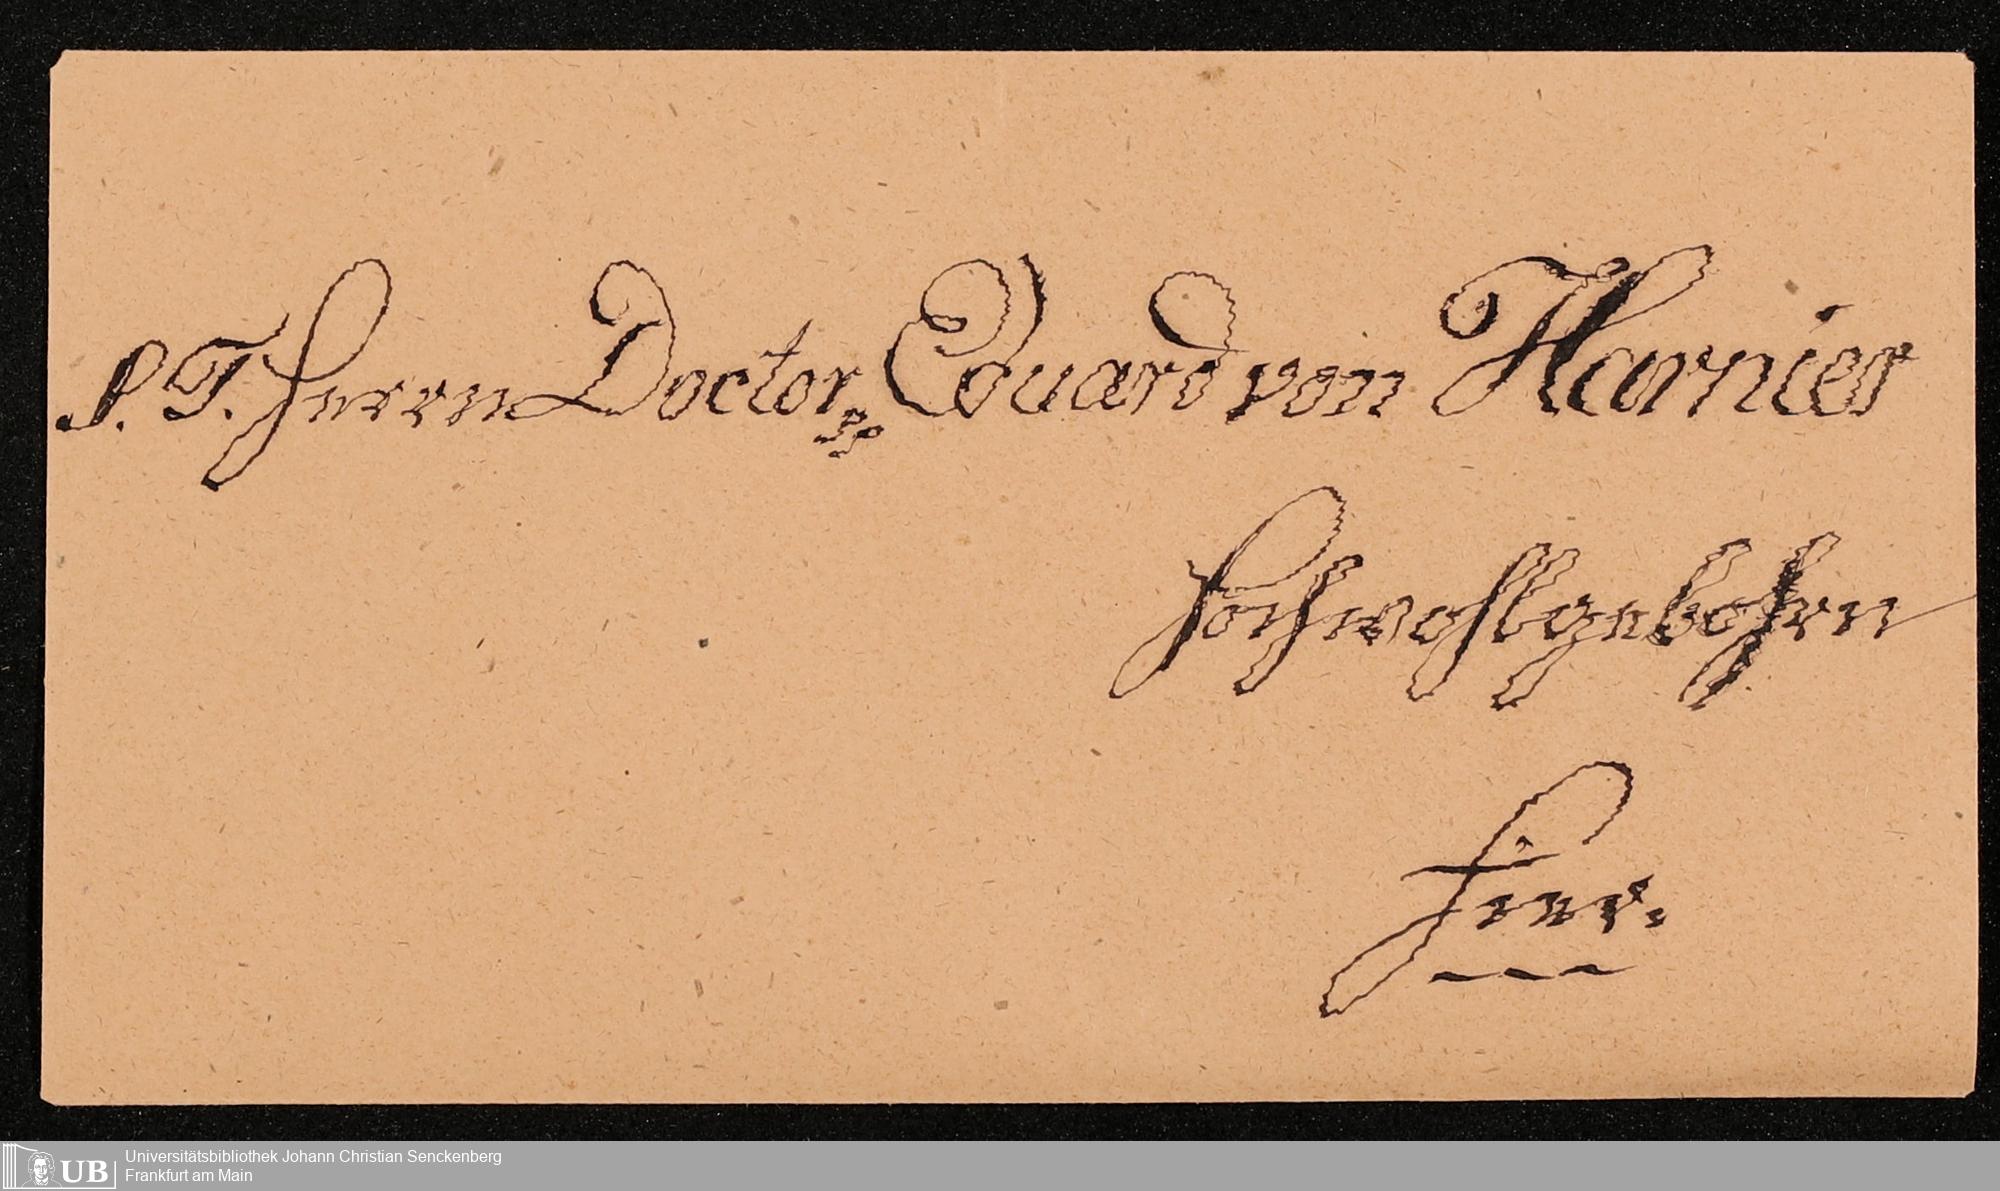 P. T. Herrn Doctor Eduard von Harnier
Hochwohlgebohrn
Hier.
UB
Universitätsbibliothek Johann Christian Senckenberg
Frankfurt am Main